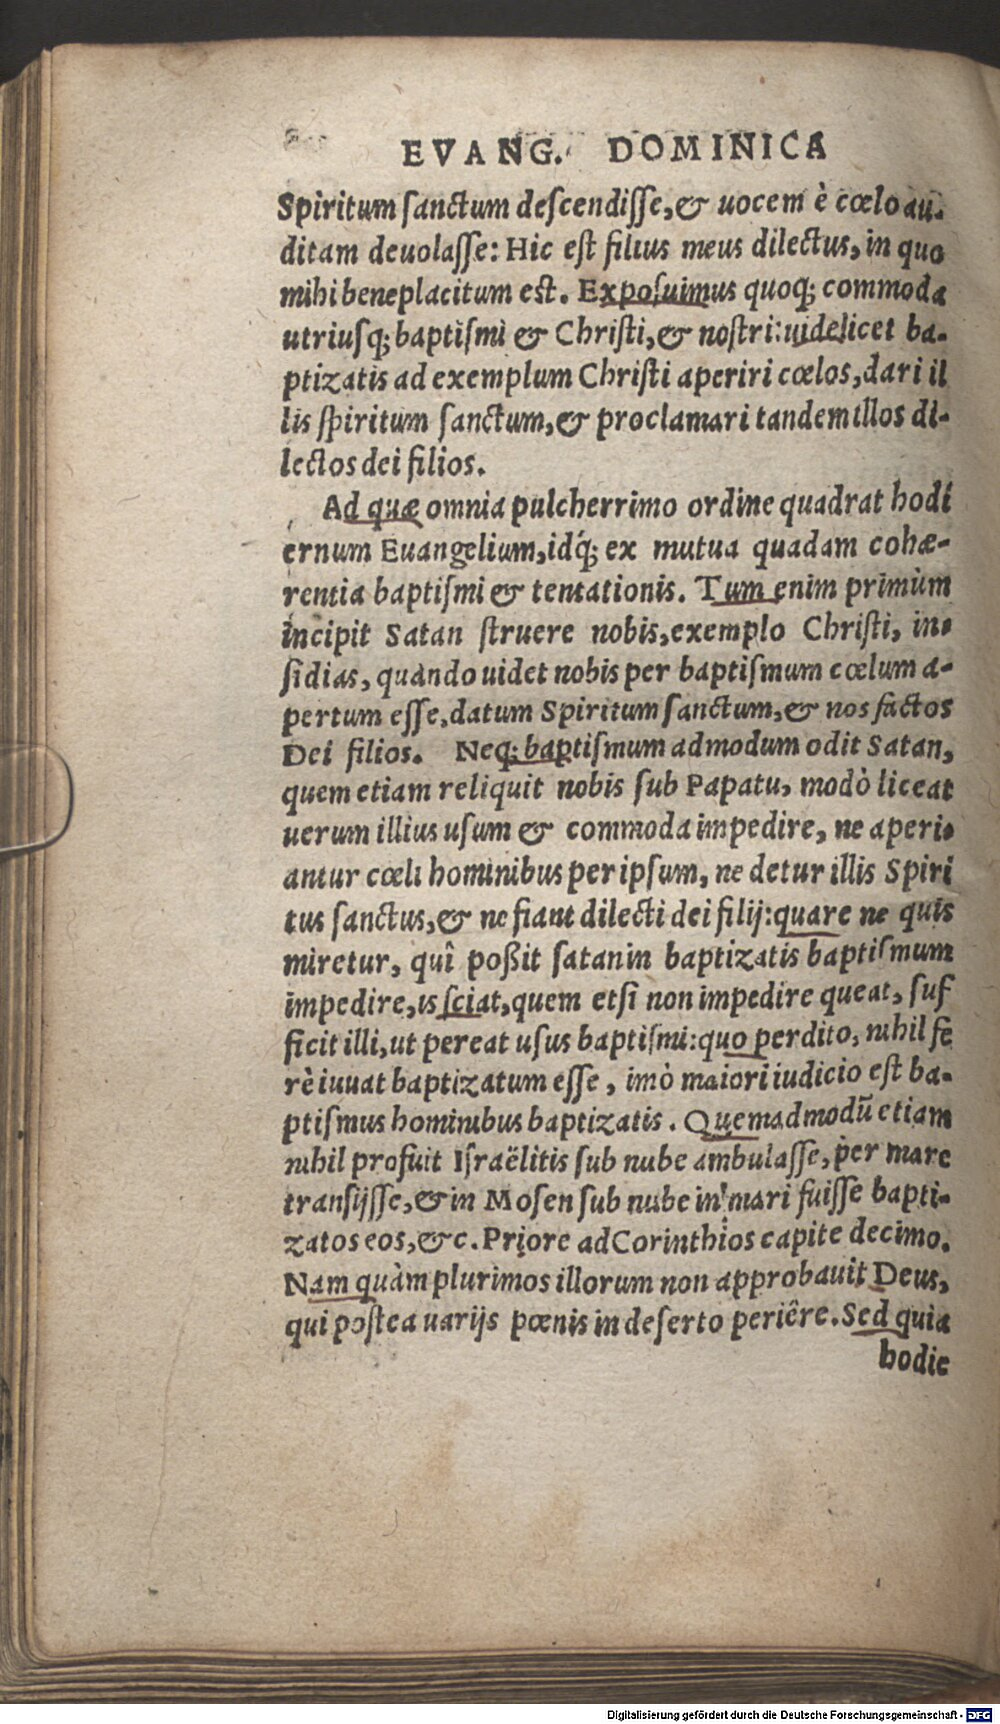 EVANG. DOMINICA
Spiritum ſanctum deſcendiſſe, & uocem è cœlo au-
ditam deuolaſſe: Hic eſt filius meus dilectus, in quo
mihi beneplacitum est. Expoſuimus quoq; commoda
utriuſq; baptiſmi & Chriſti, & noſtri: uidelicet ba-
ptizatis ad exemplum Chriſti aperiri cœlos, dari il
lis ſpiritum ſanctum, & proclamari tandem illos di-
lectos dei filios.
Ad quæ omnia pulcherrimo ordine quadrat hodi
ernum Euangelium, idq́; ex mutua quadam cohæ-
rentia baptiſmi & tentationis. Tum enim primùm
incipit Satan ſtruere nobis, exemplo Chriſti, in-
ſidias, quando uidet nobis per baptiſmum cœlum a-
pertum eſſe, datum Spiritum ſanctum, & nos factos
Dei filios. Neq; baptiſmum admodum odit Satan,
quem etiam reliquit nobis ſub Papatu, modò liceat
uerum illius uſum & commoda impedire, ne aperi-
antur cœli hominibus per ipſum, ne detur illis Spiri
tus ſanctus, & ne fiant dilecti dei filij: quare ne quis
miretur, quî poßit ſatan in baptizatis baptiſmum
impedire, is ſciat, quem etſi non impedire queat, ſuf
ficit illi, ut pereat uſus baptiſmi: quo perdito, nihil fe
rè iuuat baptizatum eſſe, imò maiori iudicio eſt ba-
ptiſmus hominibus baptizatis. Quemadmodū etiam
nihil profuit Iſraëlitis ſub nube ambulaſſe, per mare
tranſijſſe, & in Moſen ſub nube in mari fuiſſe bapti-
zatos eos, &c. Priore ad Corinthios capite decimo.
Nam quàm plurimos illorum non approbauit Deus,
qui poſtea uarijs pœnis in deſerto periêre. Sed quia
hodie
Digitalisierung gefördert durch die Deutsche Forschungsgemeinschaft - DFG